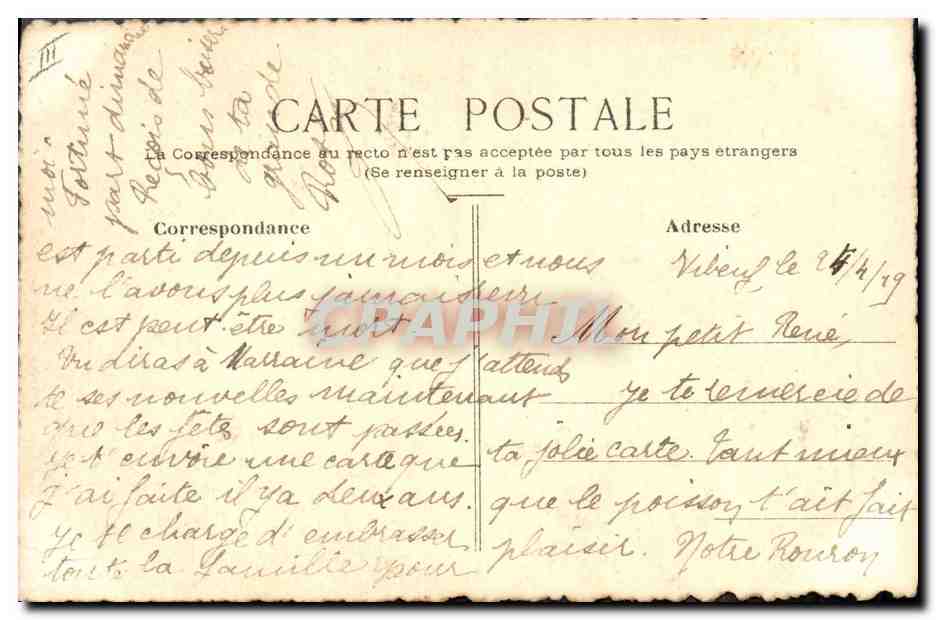 III
CARTE POSTALE
La Correspondance au recto n'est pas acceptée par tous les pays etrangers
(Se renseigner à la poste)
Correspondance
Adresse
Vibeuf le 24/4/19
Mon petit René,
Je te remercie de
ta jolie carte. Tant mieux
que le poisson t'ait fait
plaisir. Notre Rouron
est parti depuis un mois et nous
ne l'avons plus jamais revu
Il est peut-être mort
Tu diras à Marraine que j'attends
de ses nouvelles maintenant
que les fêtes sont passées.
Je t'envoie une carte que
j'ai faite il y a deux ans.
Je te charge d'embrasser
toute la famille pour
moi.
Fortuné
part dimanche
Reçois de
bons baisers
de ta
grande
Rose
CPAPHIL